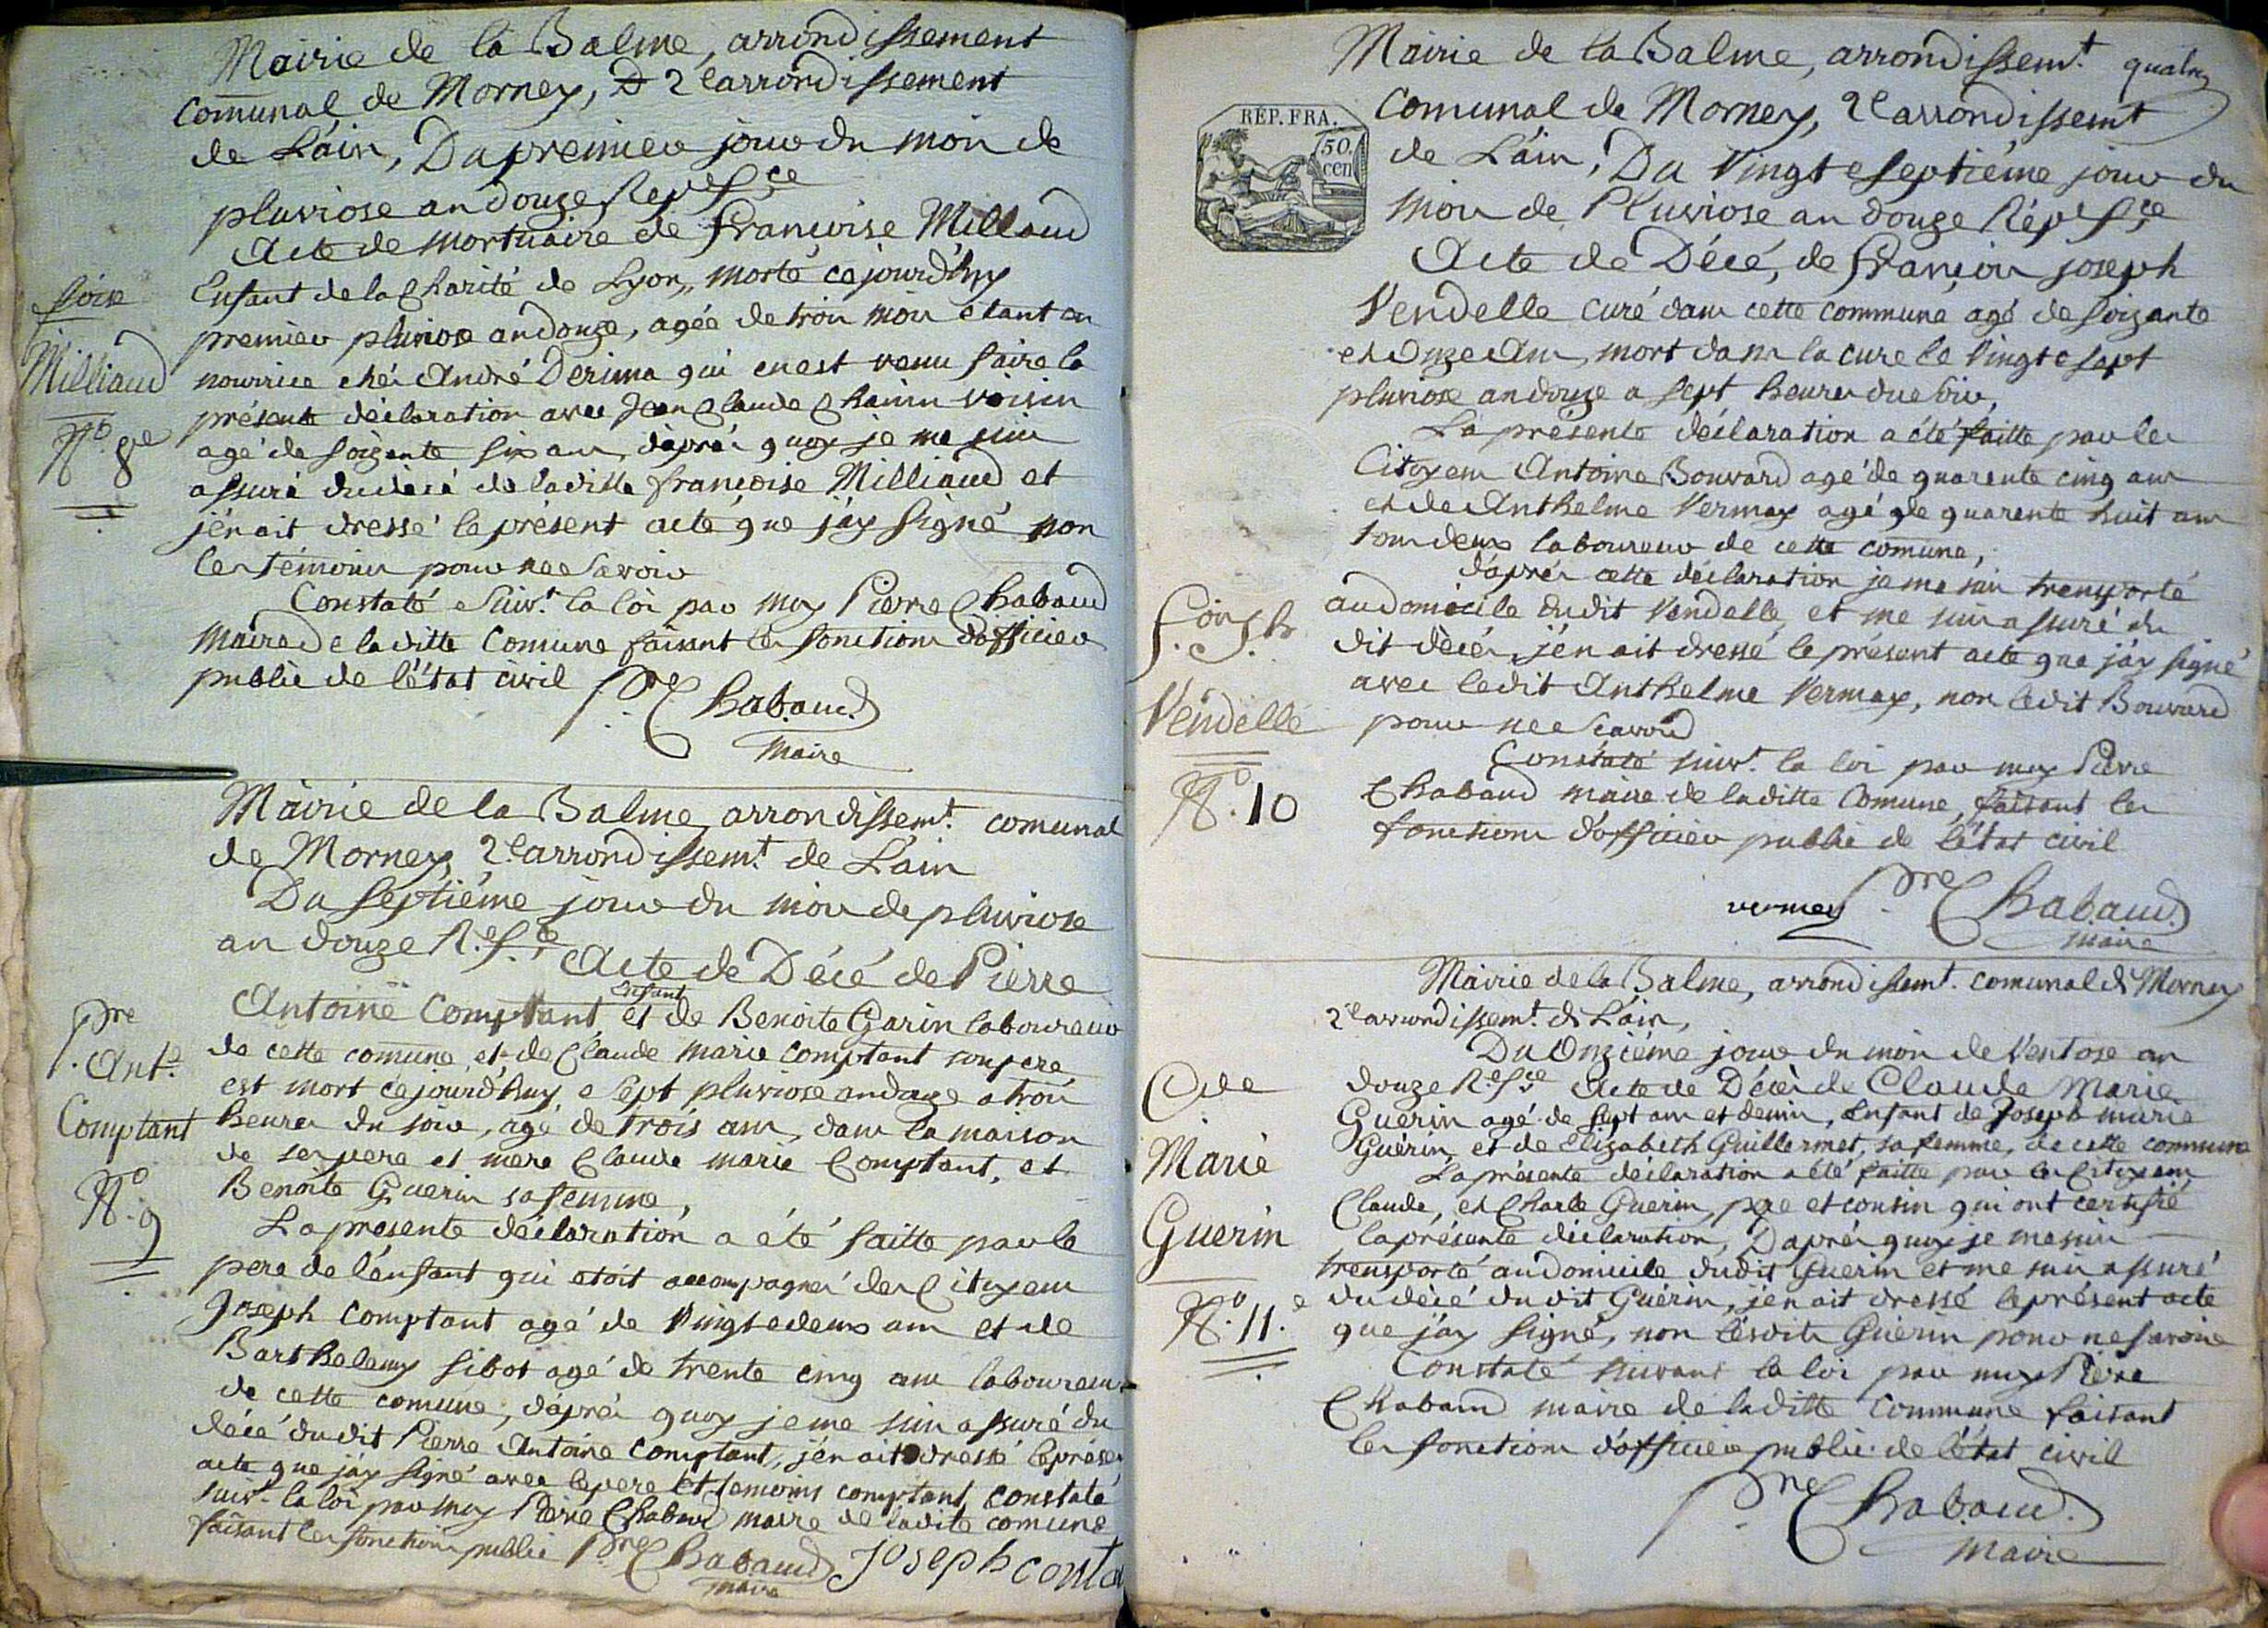 Mairie de la Balme, arrondissement
comunal de Mornex, D 2e arrondissement
de L'áin, Du premier jour du mois de
pluviose an douze Repe fce
Acte de mortuaire de françoise Millaud
Enfant de la Charité de Lyon, morte cejourd'huy
premier pluviose an douze, agée de trois mois étant en
nourrice chés André Derima qui en est venu faire la
présente déclaration avec Jean Claude Chainu voisin
agé de soizente six ans, d'aprés quoy je me suis
assuré du décé de laditte françoise Milliaud et
j'én ait dressé le présent acte que j'ay signé non
les témoins pour ne Savoir
Constaté Suivt. la loi par moy Pierre Chabaud
maire de laditte Comune faisant les fonctions d'officier
public de l'état civil
Pre Chabaud
maire
foise
Milliaud
No. 8e
Mairie de la Balme, arrondissemt. comunal
de Mornex, 2e arrondissemt. de L'ain
Du Septiéme jour du mois de pluviose
an douze R.e f.ce Acte de Décé de Pierre
Enfant
Antoine Comptant, et de Benoite Garin laboureur
de cette comune et de Claude marie Comptant son pere
est mort cejourd'huy, e Sept pluviose an douze a trois
heures du soir, agé de trois ans, dans la maison
de ses pere et mere Claude marie Comptant, et
Benoite Guerin sa femme,
La presente déclaration a été faitte par le
pere de l'énfant qui etoit accompagnés des Citoyens
Joseph Comptant agé de Vingtedeux ans et de
Barthelemy Sibot agé de trente cinq ans laboureurs
de cette comune, d'aprés quoy je me suis assuré du
décé dudit Pierre Antoine Comptant, j'én ait dressé le présen
acte que j'ay signé avec le pere et temoins comptant, constaté
suivt. la loi par moy Pierre Chabaud maire de ladite comune
faisant les fonctions public Pre Chabaud Joseph conta
maire
Pre
Ant.e
Comptant
No. 9
Mairie de la Balme, arrondissemt. quatre
comunal de Mornex, 2e arrondissemt
de L'áin, Du Vingt e Septiéme jour du
mois de Pluviose an douze Répe fce
REP. FRA.
50.
cen
Acte de Décé, de françois joseph
Vendelle curé dans cette commune agé de soizante
et Onze Ans, mort dans la cure le Vingt e sept
pluviose an douze a sept heures du soir,
La présente déclaration a été faitte par les
Citoyens Antoine Bouvard agé de quarente cinq ans
et de Anthelme Vermay agé de quarente huit ans
tous deux laboureur de cette comune,
d'aprés cette déclaration je me suis trensporté
au domicile dudit Vendelle, et me suis assuré du
dit décés, j'én ait dressé le présent acte que j'ay signé
avec ledit Anthelme Vermay, non ledit Bouvard
pour ne Scavoir
Constaté suivt. la loi par moy Pierre
Chabaud maire de laditte Comune, faisant les
fonctions d'officier public de l'état civil
vermey Pre Chabaud
maire
f.ois J.h
Vendelle
No. 10
Mairie de la Balme, arrondissemt. comunal de Mornex
2e arrondissemt. de L'ain,
Du Onziéme jour du mois de Ventose an
douze R.e fce Acte de Décés de Claude Marie
Guerin agé de sept ans et demin, Enfant de Joseph marie
Guérin, et de Elizabeth Guillermet, sa femme, de cette commune
La présente déclaration a été faitte par les Citoyens
Claude, et Charle Guerin, pere et cousin qui ont certifié
la présente déclaration, D'aprés quoy je me suis
trensporté au domicile dudit Guerin et me suis assuré
du décé dudit Guérin, j'en ait dressé le présent acte
que j'ay signé, non lésdits Guérin pour ne savoir
Constaté suivant la loi par moy Pierre
Chabaud maire de laditte Commune faisant
les fonctions d'officier public de l'état civil
Pre Chabaud.
maire
Cde
Marie
Guerin
No. 11.e